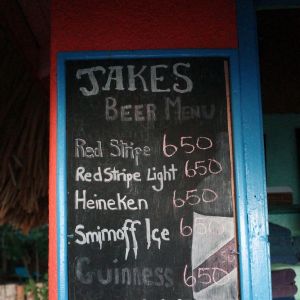 JAKES
BEER MENU
Red Stripe 650
Red Stripe Light 650
Heineken 650
Smirnoff Ice 650
Guinness 650